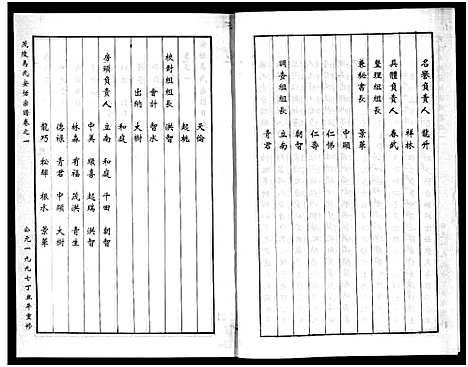 名譽負責人 龍升
祥林
具體負責人 春武
整理組組長
兼秘書長 景華
中頤
仁悌
仁壽
調查組組長 立南 朝智
青君
天倫
起桃
校對組組長 洪智
會計 智水
出納 大樹
和庭
房頭負責人 立南 和庭 千田 朝智
中美 順喜 起瑞 洪智
林森 有福 茂洪 青生
德祿 青君 中頤 大樹
龍巧 松輝 根水 景華
茂陵馬氏安仁宗譜卷之一
公元一九九七丁丑年重修